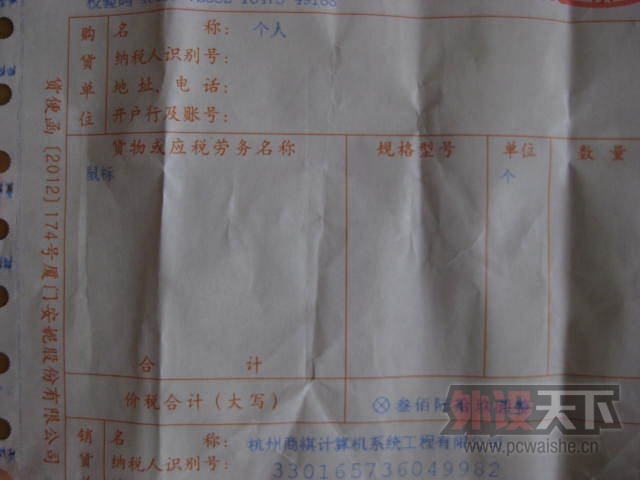 校验码
购货单位
名 称: 个人
纳税人识别号:
地址、电话:
开户行及账号:
货物或应税劳务名称 规格型号 单位 数量
鼠标 个
合 计
价税合计(大写) ⊗叁佰陆
销货
名 称: 杭州商祺计算机系统工程有限公司
纳税人识别号: 330165736049982
货便函〔2012〕174号厦门安妮股份有限公司
外设天下
www.pcwaishe.cn